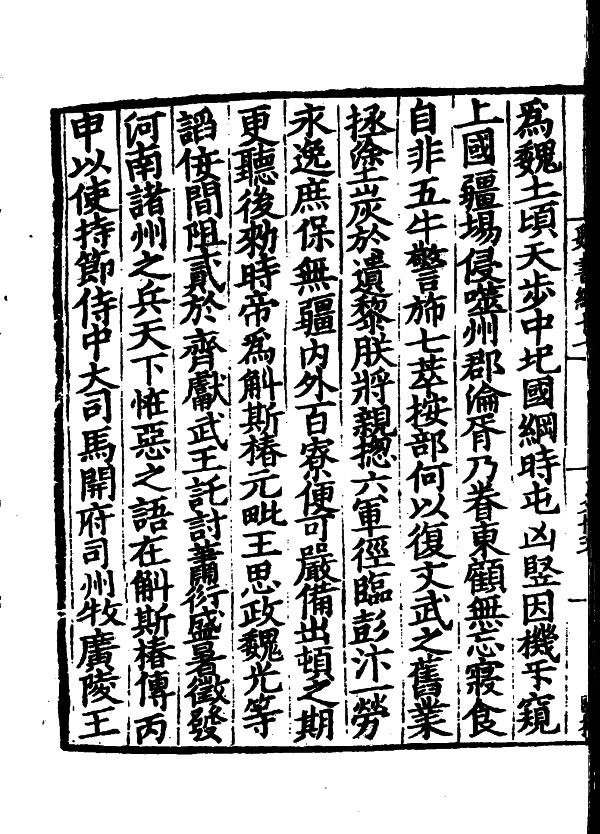 為魏土頃天步中圮國綱時屯凶豎因機互窺
上國疆埸侵噬州郡淪胥乃眷東顧無忘寢食
自非五牛警斾七萃按部何以復文武之舊業
拯塗炭於遺黎朕將親摠六軍徑臨彭汴一勞
永逸庶保無疆內外百寮便可嚴備出頓之期
更聽後勑時帝為斛斯椿元毗王思政魏光等
諂佞間阻貳於齊獻武王託討蕭衍盛暑徵發
河南諸州之兵天下恠惡之語在斛斯椿傳丙
申以使持節侍中大司馬開府司州牧廣陵王